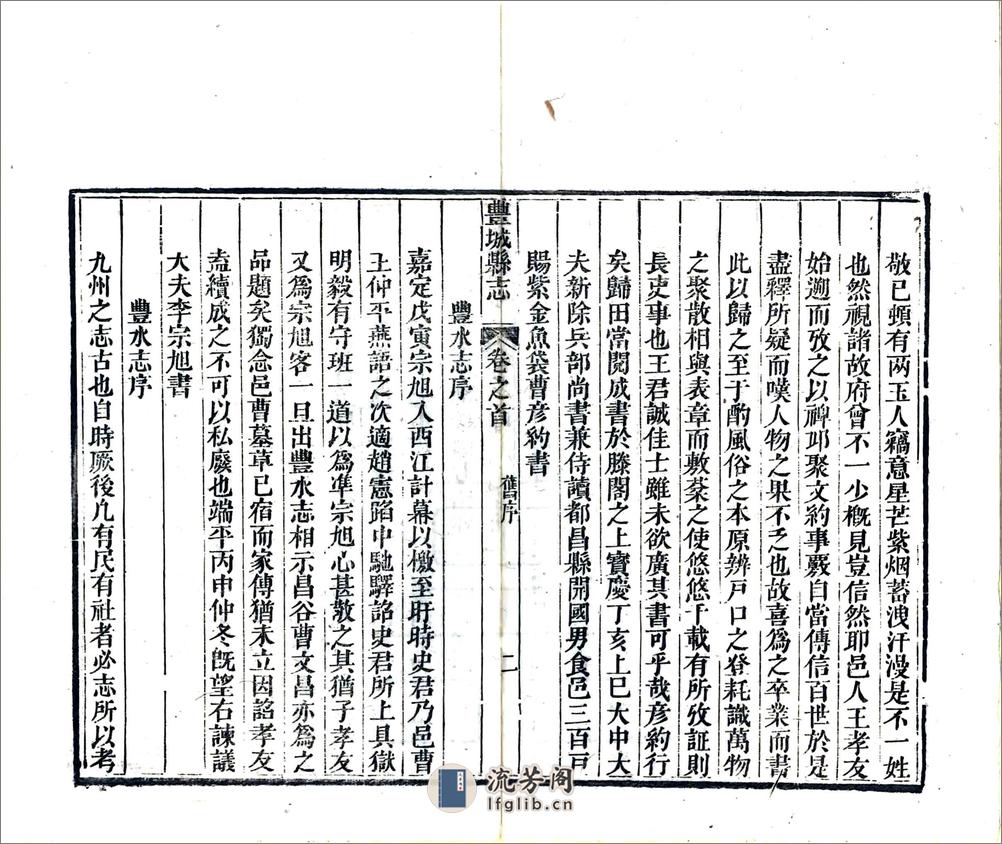 敬已頓有兩玉人竊意星芒紫烟蓄洩汗漫是不一姓
也然視諸故府曾不一少槪見豈信然耶邑人王孝友
始遡而攷之以禆邱聚文約事覈自當傳信百世於是
盡釋所疑而嘆人物之果不乏也故喜爲之卒業而書
此以歸之至于酌風俗之本原辨戸口之登耗識萬物
之聚散相與表章而敷棻之使悠悠千載有所攷証則
長吏事也王君誠佳士雖未欲廣其書可乎哉彦約行
矣歸田當閱成書於滕閣之上寶慶丁亥上巳大中大
夫新除兵部尚書兼侍讀都昌縣開國男食邑三百戸
賜紫金魚袋曹彦約書
豐城縣志 卷之首 舊序 二
豐水志序
嘉定戊寅宗旭入西江計幕以檄至盱時史君乃邑曹
王仲平燕語之次適趙憲䧟中馳驛諮史君所上具獄
明毅有守班一道以爲凖宗旭心甚敬之其猶子孝友
又爲宗旭客一旦出豐水志相示昌谷曹文昌亦爲之
品題矣獨念邑曹墓草已宿而家傳猶未立因諮孝友
盍續成之不可以私廢也端平丙申仲冬旣望右諫議
大夫李宗旭書
豐水志序
九州之志古也自時厥後凢有民有社者必志所以考
流芳阁
lfglib.cn